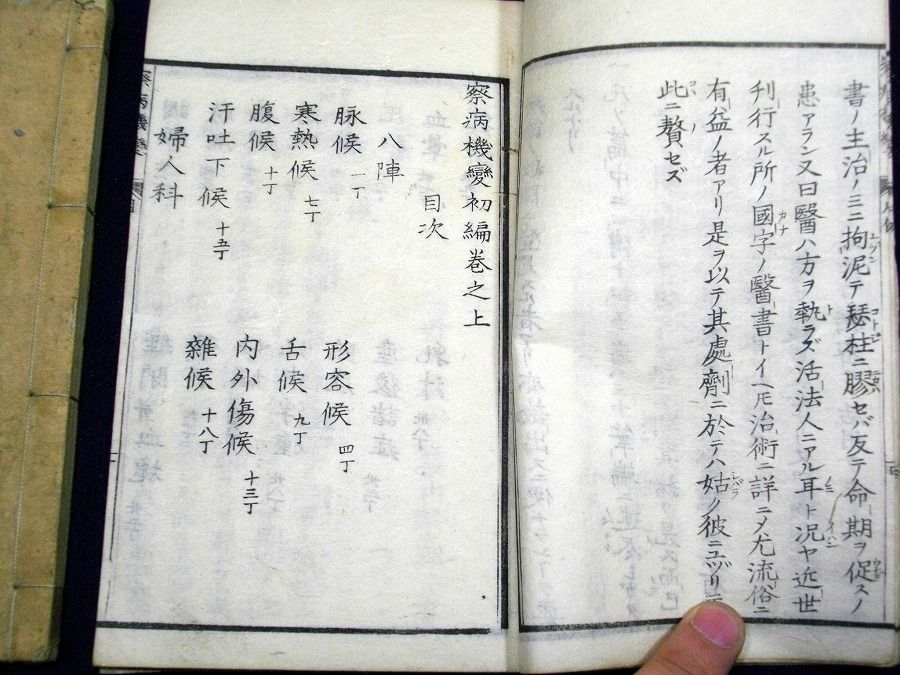 書ノ主治ノミニ拘泥テ瑟柱ニ膠セバ友テ命期ヲ促スノ
患アラン又曰醫ハ方ヲ執ラズ活法人ニアル耳ト况ヤ近世
刊行スル所ノ國字ノ醫書トイヘ𪜈治術ニ詳ニ〆尤流俗ニ
有益ノ者アリ是ヲ以テ其處劑ニ於テハ姑ク彼ニユヅリテ
此ニ贅セズ
察病機變初編卷之上
目次
八陣
脉候 一丁
形容候 四丁
寒熱候 七丁
舌候 九丁
腹候 十丁
内外傷候 十三丁
汗吐下候 十五丁
雜候 十八丁
婦人科